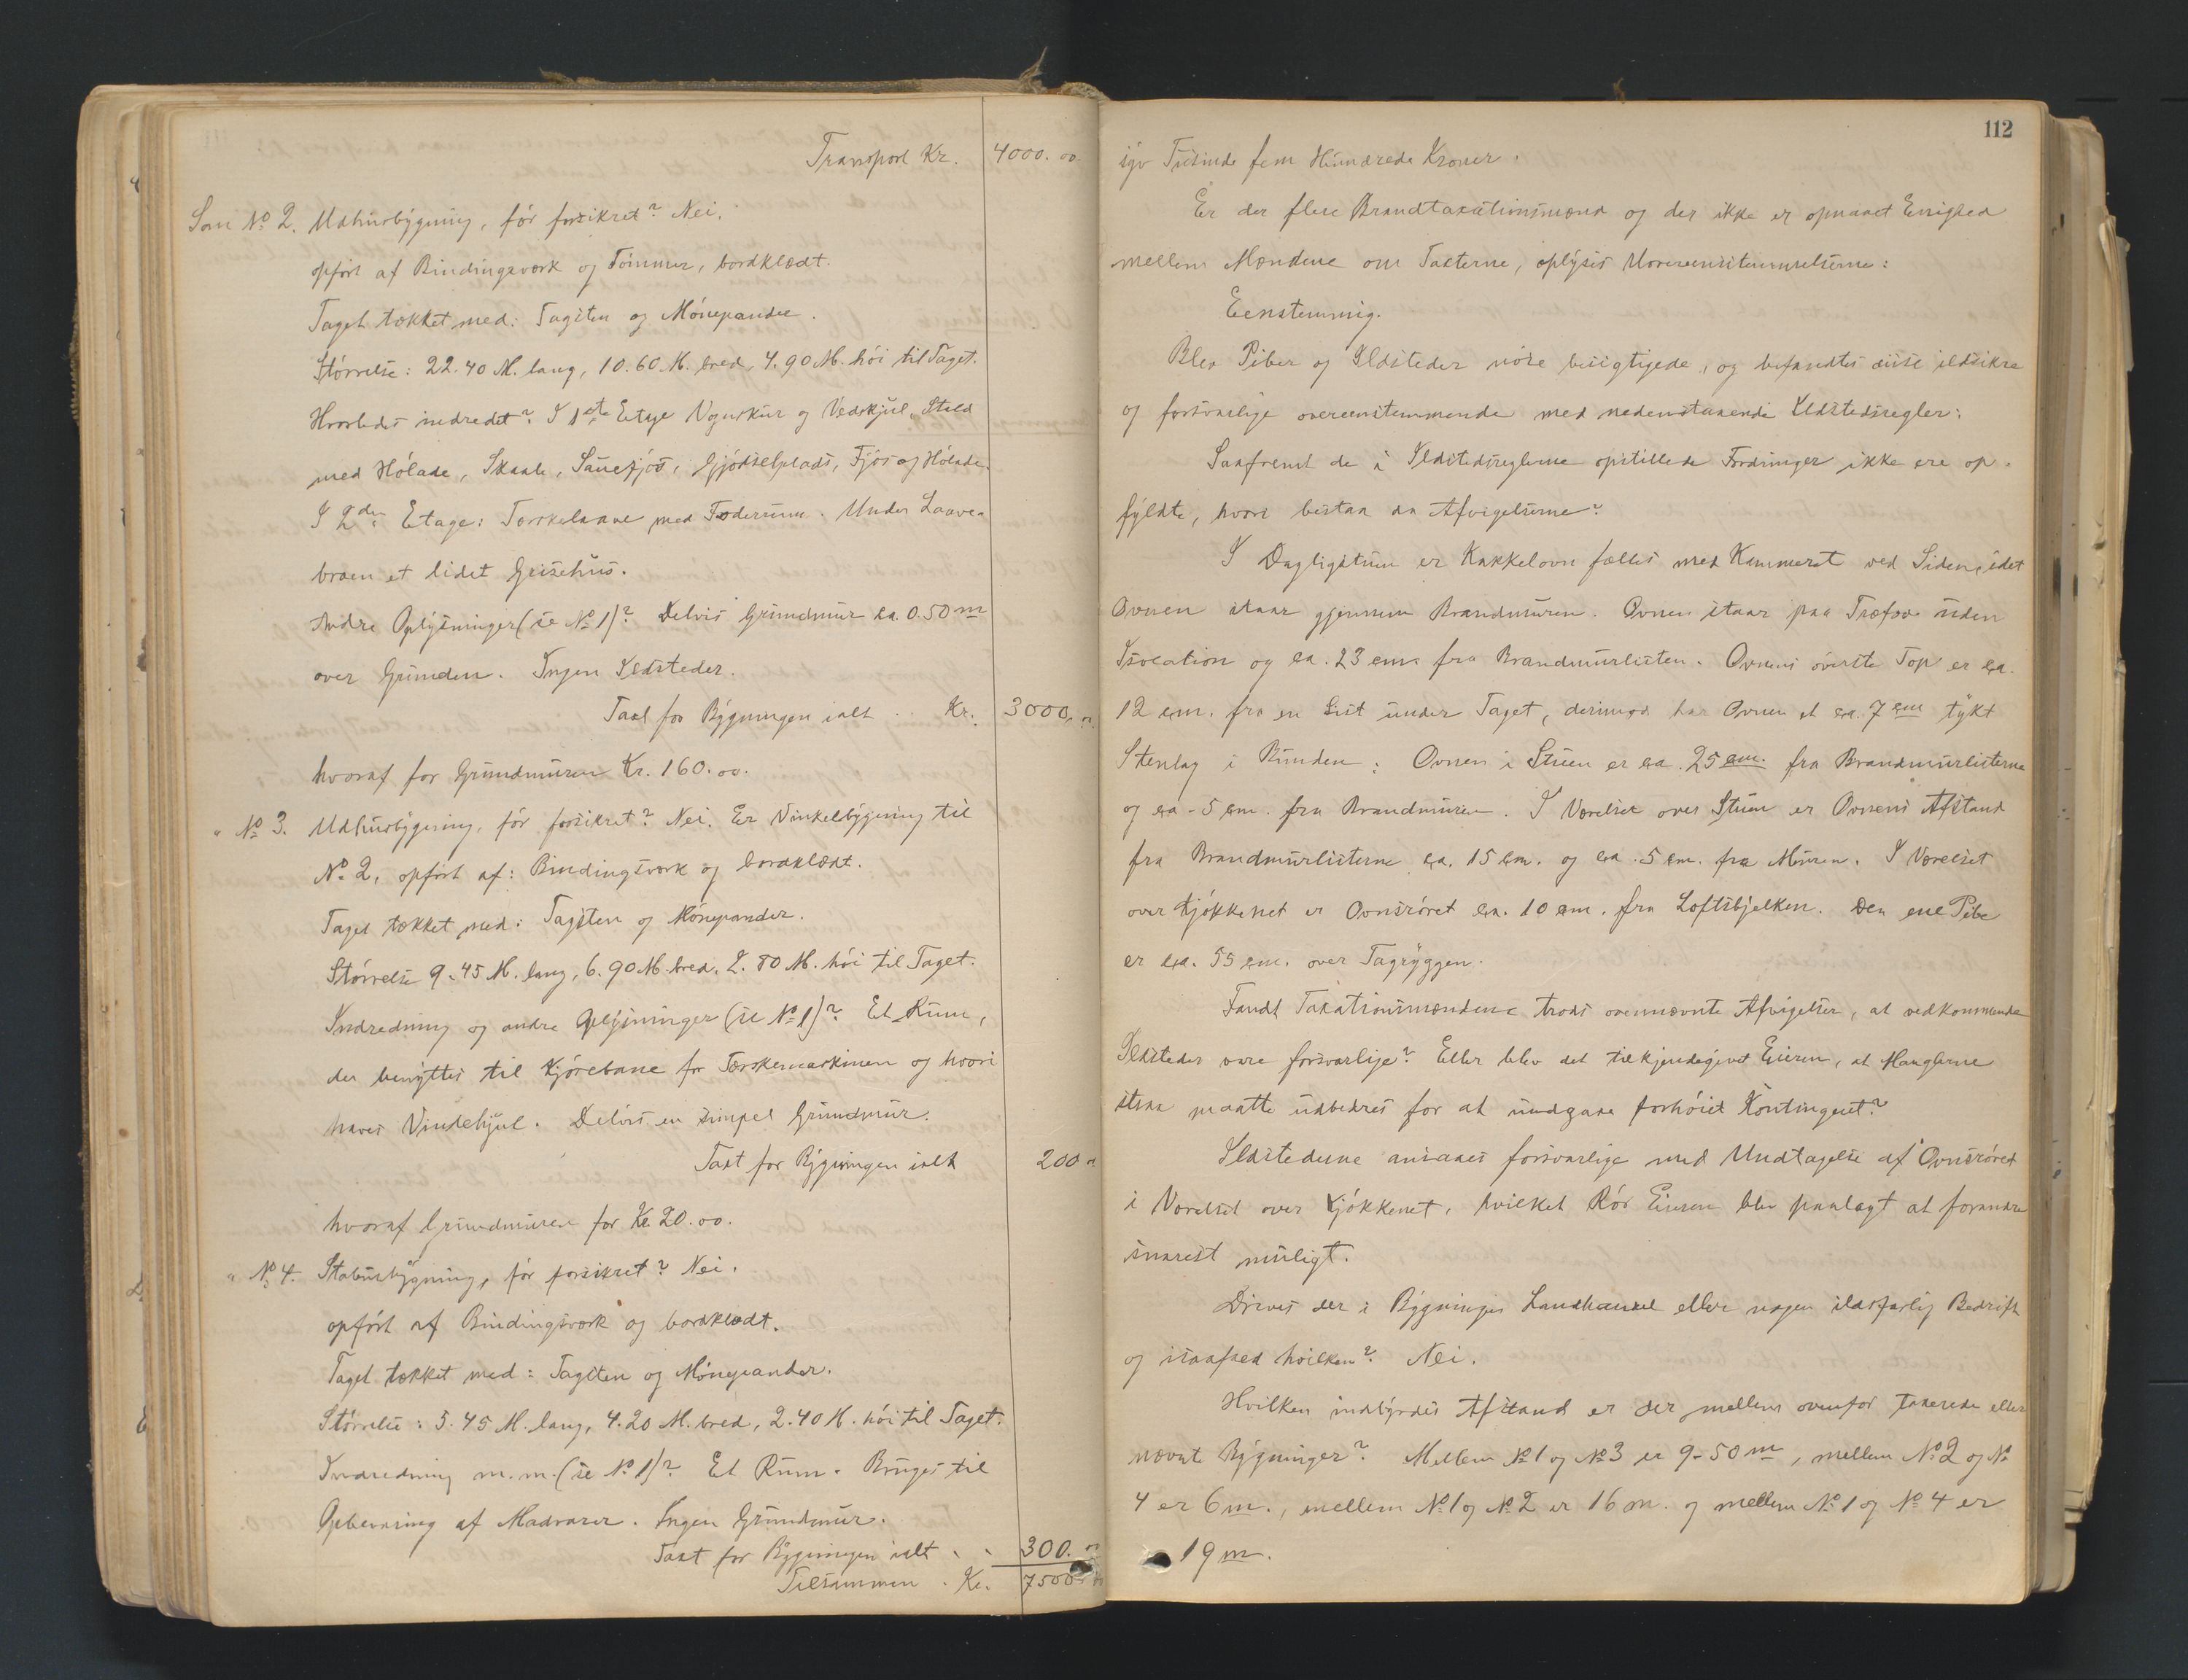 Transport Kr. 4000.00
Som No 2. Udhusbygning, før forsikret? Nei.
opført af Bindingsværk og Tømmer, bordklædt.
Taget tækket med: Tagsten og Mønepander.
Størrelse: 22.40 M. lang, 10.60 M. bred, 4.90 M. høi til Taget.
Hvorledes indredet? I 1ste Etage Vognskur og Vedskjul, Stald
med Hølade, Skaale, Sauefjøs, Gjødselplads, Fjøs og Hølade.
I 2den Etage: Torskelaave med Foderum. Under Laave-
broen et lidet Grisehus.
Andre Oplysninger (se No 1)? Delvis Grundmur ca. 0.50 m
over Grunden. Ingen Ildsteder.
Taxt for Bygningen ialt . Kr. 3000.00
hvoraf for Grundmuren Kr. 160.00.
" No 3. Udhusbygning, før forsikret? Nei. Er Vinkelbygning til
No 2, opført af: Bindingsværk og bordklædt.
Taget tækket med: Tagsten og Mønepander.
Størrelse 9.45 M. lang, 6.90 M. bred, 2.80 M. høi til Taget.
Indredning og andre Oplysninger (se No 1)? Et Rum,
der benyttes til Kjørebane for Tærskemaskinen og hvori
haves Vindehjul. Delvis en simpel Grundmur.
Taxt for Bygningen ialt 200 "
hvoraf Grundmuren for Kr 20.00.
" No 4. Stabursbygning, før forsikret? Nei.
opført af Bindingsværk og bordklædt.
Taget tækket med: Tagsten og Mønepander.
Størrelse: 5.45 M. lang, 4.20 M. bred, 2.40 M. høi til Taget.
Indredning m.m. (se No 1)? Et Rum. Bruges til
Opbevaring af Madvarer. Ingen Grundmur.
Taxt for Bygningen ialt . . 300. "
Tilsammen . Kr. 7500.
112
syv Tusinde fem Hundrede Kroner.
Er der flere Brandtaxationsmænd og der ikke er opnaaet Enighed
mellem Mændene om Taxterne, oplyses Uoverensstemmelserne:
Eenstemmig.
Blev Piber og Ildsteder nøie besigtigede, og befandtes disse ildsikre
og forsvarlige overeenstemmende med nedenstaaende Ildstedsregler:
Saafremt de i Ildstedsreglerne opstillede Fordringer ikke ere op-
fyldte, hvori bestaa da Afvigelserne?
I Dagligstuen er Kakkelovn fælles med Kammeret ved Siden, idet
Ovnen staar gjennem Brandmuren. Ovnen staar paa Træfod uden
Isolation og ca. 23 cm. fra Brandmurlisten. Ovnens øverste Top er ca.
12 cm. fra en List under Taget, derimod har Ovnen et ca. 7 cm tykt
Stenlag i Bunden; Ovnen i Stuen er ca. 25 cm. fra Brandmurlisterne
og ca. 5 cm. fra Brandmuren. I Værelset over Stuen er Ovnens Afstand
fra Brandmurlisterne ca. 15 cm. og ca. 5 cm. fra Muren. I Værelset
over Kjøkkenet er Ovnsrøret ca. 10 cm. fra Loftsbjelken. Den ene Pibe
er ca. 55 cm. over Tagryggen.
Fandt Taxationsmændene trods ovennævnte Afvigelser, at vedkommende
Ildsteder vare forsvarlige? Eller blev det tilkjendegivet Eieren, at Manglerne
strax maatte udbedres for at undgaa forhøiet Kontingent?
Ildstederne ansaaes forsvarlige med Undtagelse af Ovnsrøret
i Værelset over Kjøkkenet, hvilket Rør Eieren blev paalagt at forandre
snarest muligt.
Drives der i Bygningen Landhandel eller nogen ildsfarlig Bedrift
og isaafald hvilken? Nei.
Hvilken indbyrdes Afstand er der mellem ovenfor taxerede eller
nævnte Bygninger? Mellem No 1 og No 3 er 9.50 m, mellem No 2 og No
4 er 6 m., mellem No 1 og No 2 er 16 m. og mellem No 1 og No 4 er
19 m.